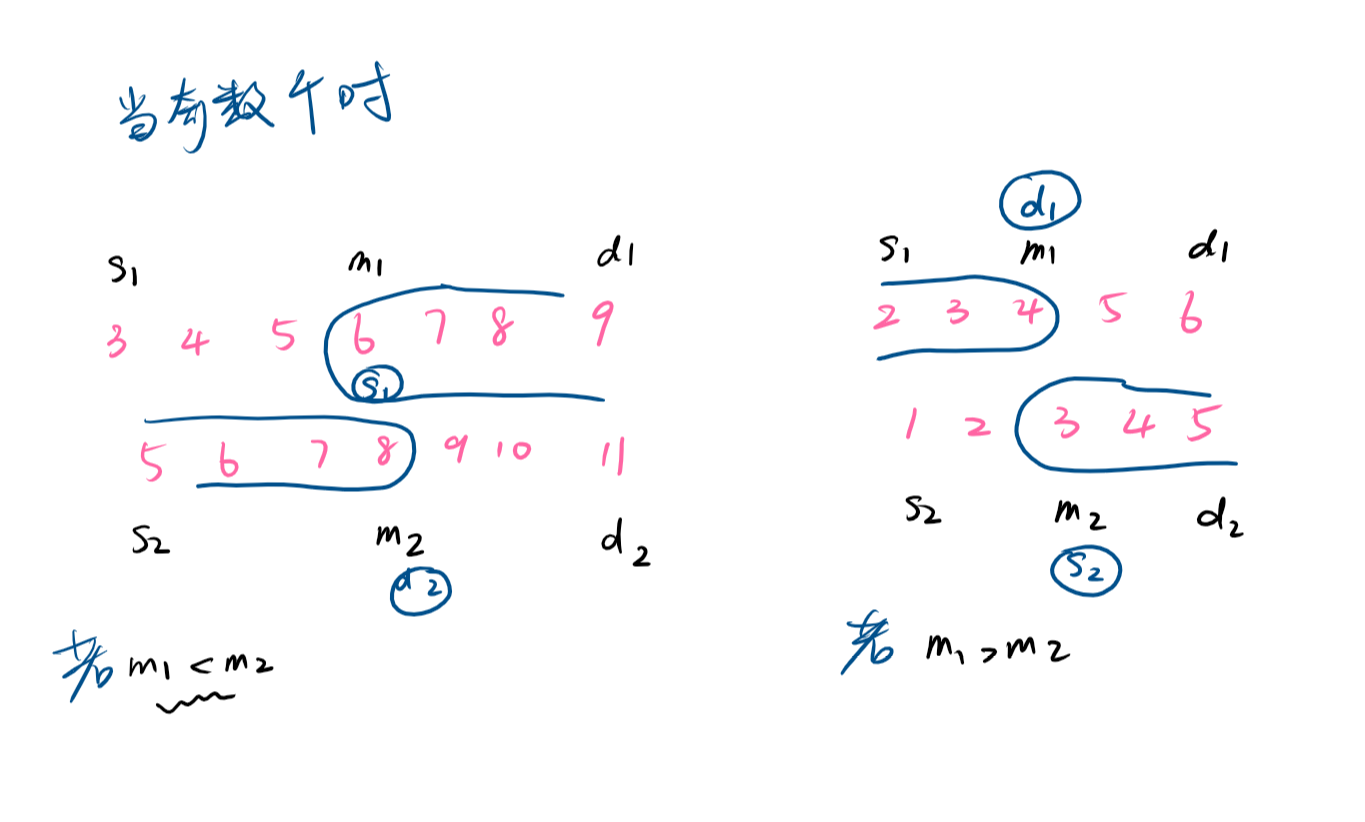 当奇数个时
s1 m1 d1
3 4 5 6 7 8 9
s1
5 6 7 8 9 10 11
s2 m2 d2
d2
若 m1 < m2
d1
s1 m1 d1
2 3 4 5 6
1 2 3 4 5
s2 m2 d2
s2
若 m1 > m2